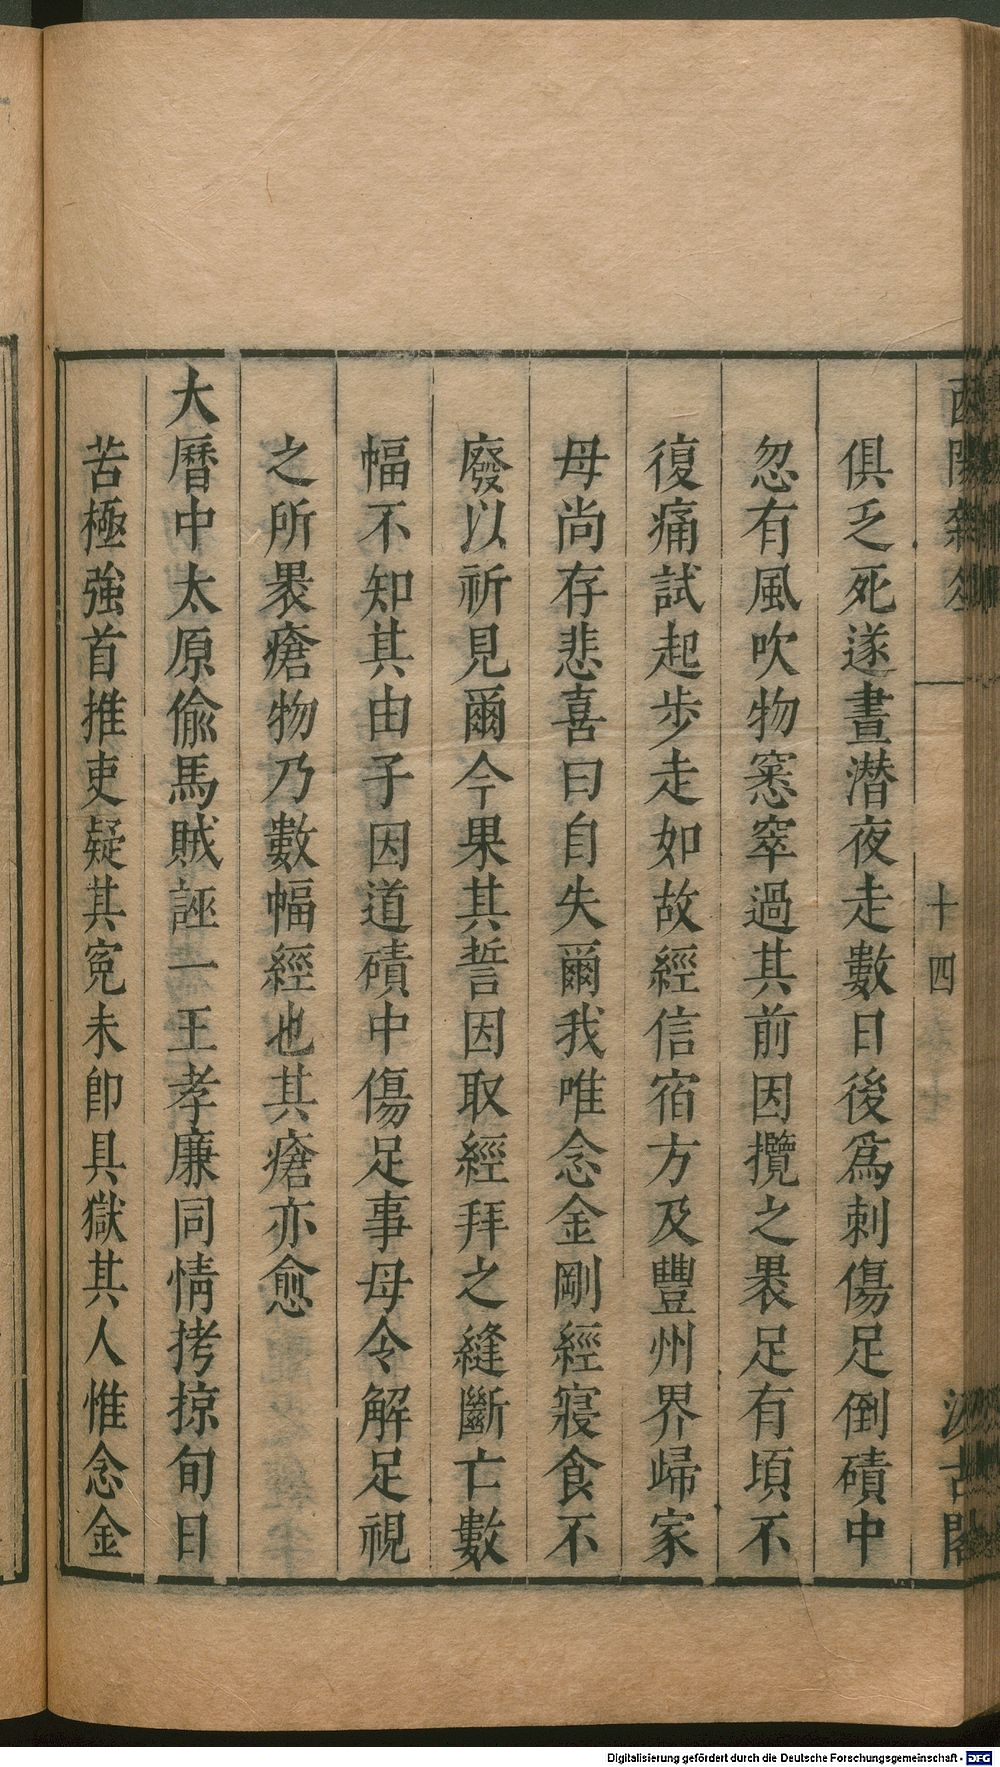 酉陽雜俎
十四
汲古閣
俱乏死遂晝潜夜走數日後爲刺傷足倒磧中
忽有風吹物窸窣過其前因攬之褁足有頃不
復痛試起步走如故經信宿方及豐州界歸家
母尚存悲喜曰自失爾我唯念金剛經寢食不
廢以祈見爾今果其誓因取經拜之縫斷亡數
幅不知其由子因道磧中傷足事母令解足視
之所褁瘡物乃數幅經也其瘡亦愈
大曆中太原偷馬賊誣一王孝廉同情拷掠旬日
苦極強首推吏疑其冤未卽具獄其人惟念金
Digitalisierung gefördert durch die Deutsche Forschungsgemeinschaft - DFG